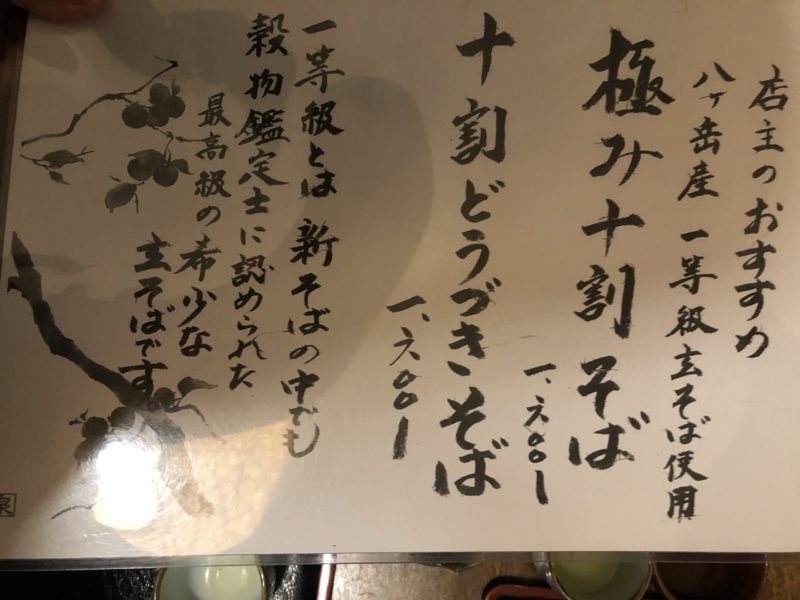 店主のおすすめ
八ヶ岳産 一等級玄そば使用
極み十割そば
一、六〇〇ー
十割どうづきそば
一、六〇〇ー
一等級とは 新そばの中でも
穀物鑑定士に認められた
最高級の希少な
玄そばです。